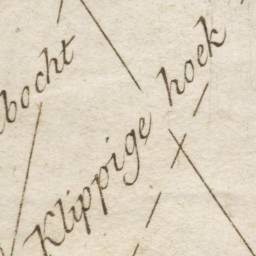 bocht
Klippige hoek